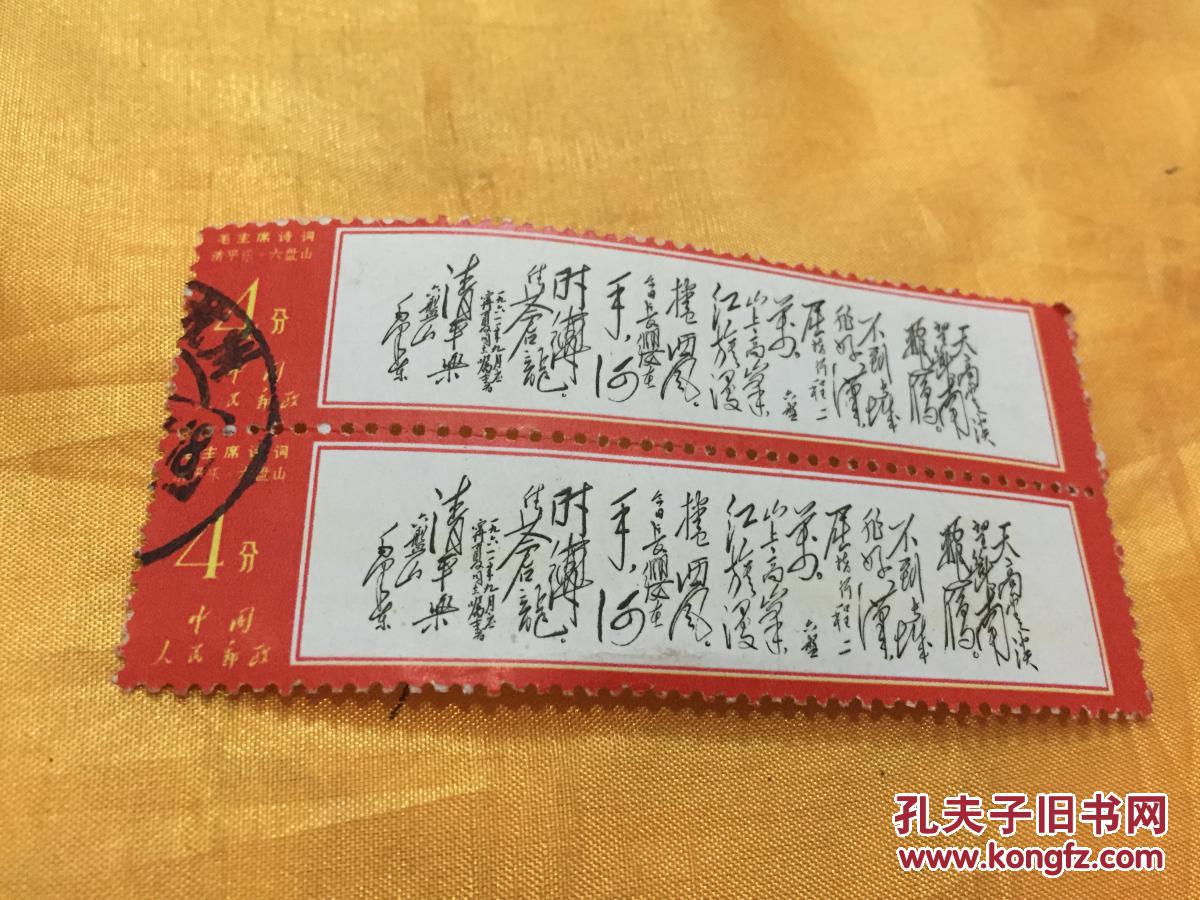 毛主席诗词
清平乐·六盘山
4分
中国
人民邮政
天高雲淡
望斷南
飛雁。
不到長城
非好漢,
屈指行程二
萬。六盤
山上高峰,
红旗漫
捲西风。
今日長纓在
手,何
时縛
住蒼龍。
一九六一年九月应
宁夏同志嘱書
清平樂
六盤山
毛泽东
主席诗词
平乐·六盘山
4分
中国
人民邮政
天高雲淡
望斷南
飛雁。
不到長城
非好漢,
屈指行程二
萬。六盤
山上高峰,
红旗漫
捲西风。
今日長纓在
手,何
时縛
住蒼龍。
一九六一年九月应
宁夏同志嘱書
清平樂
六盤山
毛泽东
孔夫子旧书网
www.kongfz.com